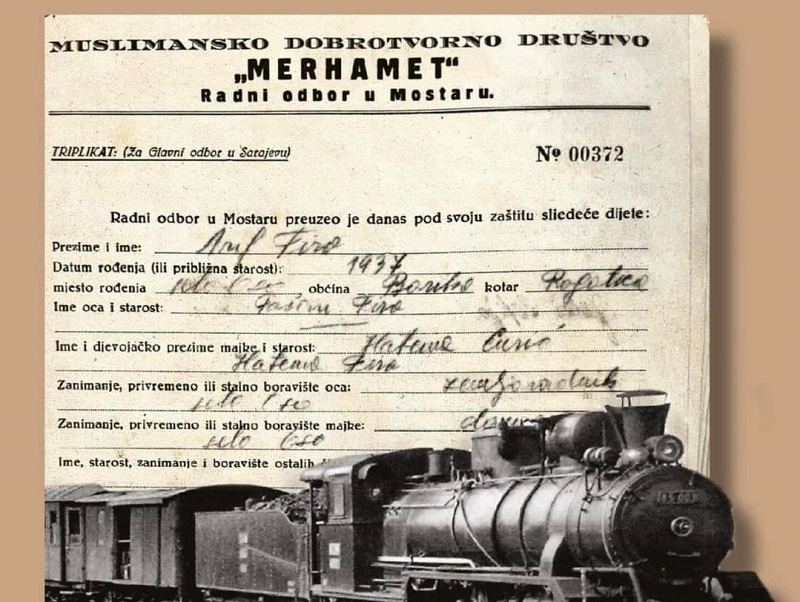 MUSLIMANSKO DOBROTVORNO DRUŠTVO
„MERHAMET“
Radni odbor u Mostaru.
TRIPLIKAT: (Za Glavni odbor u Sarajevu)
Nº 00372
Radni odbor u Mostaru preuzeo je danas pod svoju zaštitu sliedeće dijete:
Prezime i ime: Arif Firo
Datum rođenja (ili približna starost): 1937
mjesto rođenja selo općina Borike kotar Rogatica
Ime oca i starost: Firo
Ime i djevojačko prezime majke i starost: Hatema
Hatema Firo
Zanimanje, privremeno ili stalno boravište oca: zemljoradnik
selo
Zanimanje, privremeno ili stalno boravište majke:
selo
Ime, starost, zanimanje i boravište ostalih